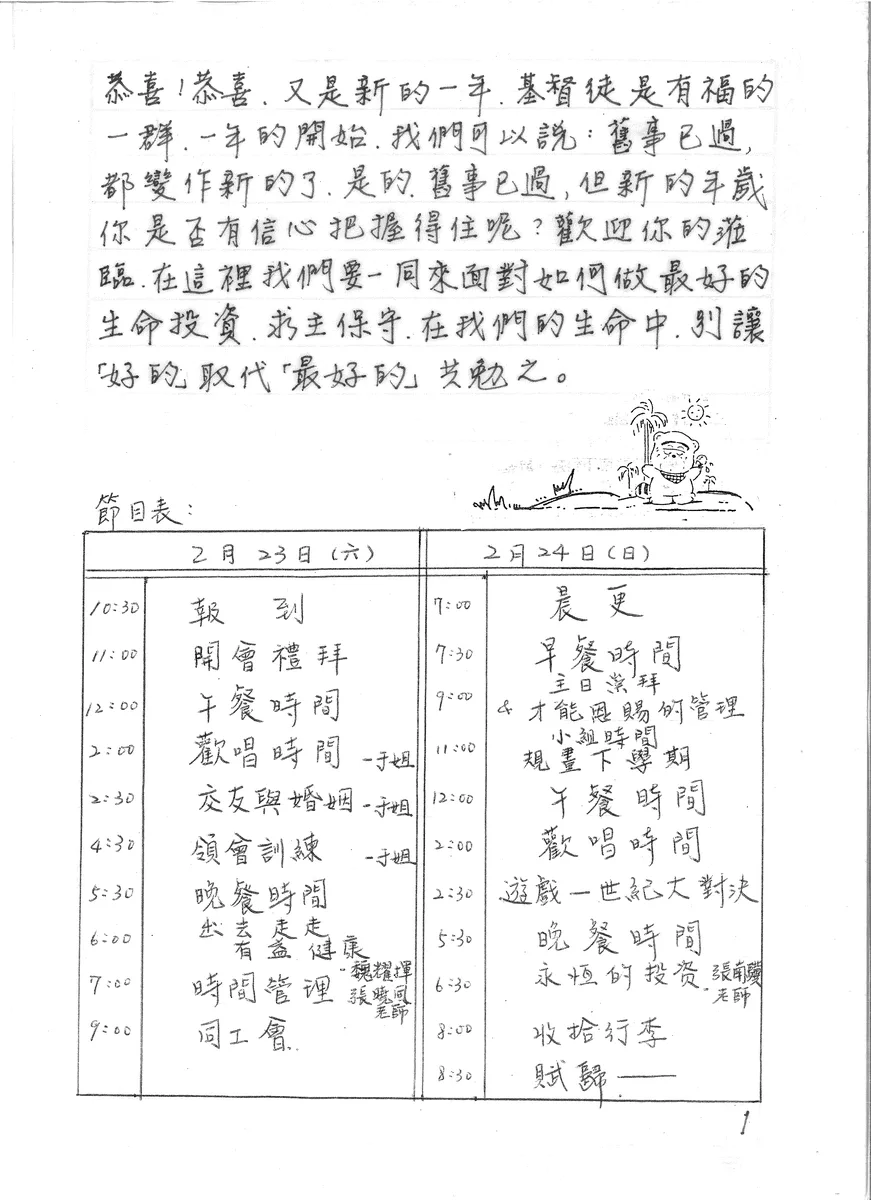 恭喜!恭喜.又是新的一年.基督徒是有福的
一群.一年的開始.我們可以說:舊事已過,
都變作新的了.是的.舊事已過,但新的年歲
你是否有信心把握得住呢?歡迎你的蒞
臨.在這裡我們要一同來面對如何做最好的
生命投資.求主保守.在我們的生命中.別讓
「好的」取代「最好的」共勉之。
節目表:
2月23日(六)
10:30 報到
11:00 開會禮拜
12:00 午餐時間
2:00 歡唱時間 -于姐
2:30 交友與婚姻 -于姐
4:30 領會訓練 -于姐
5:30 晚餐時間
6:00 出去走走
有益健康
7:00 時間管理 魏耀揮
張曉風
老師
9:00 同工會
2月24日(日)
7:00 晨更
7:30 早餐時間
9:00 主日崇拜
& 才能恩賜的管理
11:00 小組時間
規畫下學期
12:00 午餐時間
2:00 歡唱時間
2:30 遊戲一世紀大對決
5:30 晚餐時間
6:30 永恆的投資 張南驥
老師
8:00 收拾行李
8:30 賦歸——
1